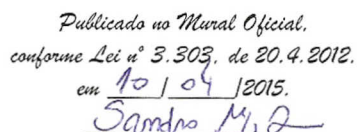 Publicado no Mural Oficial,
conforme Lei nº 3.303, de 20.4.2012.
em 10 / 04 /2015.
Sandro